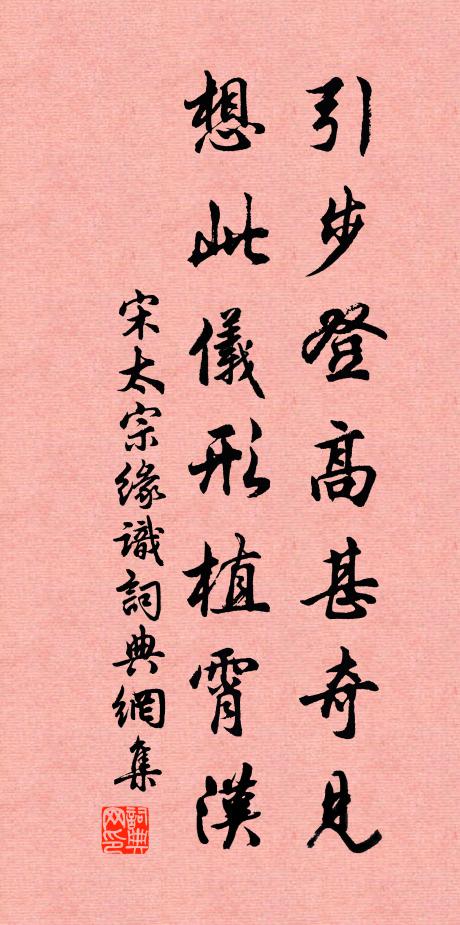 引步登高甚奇見
想此儀形植霄漢
宋太宗緣識詞典網集
詞典网印